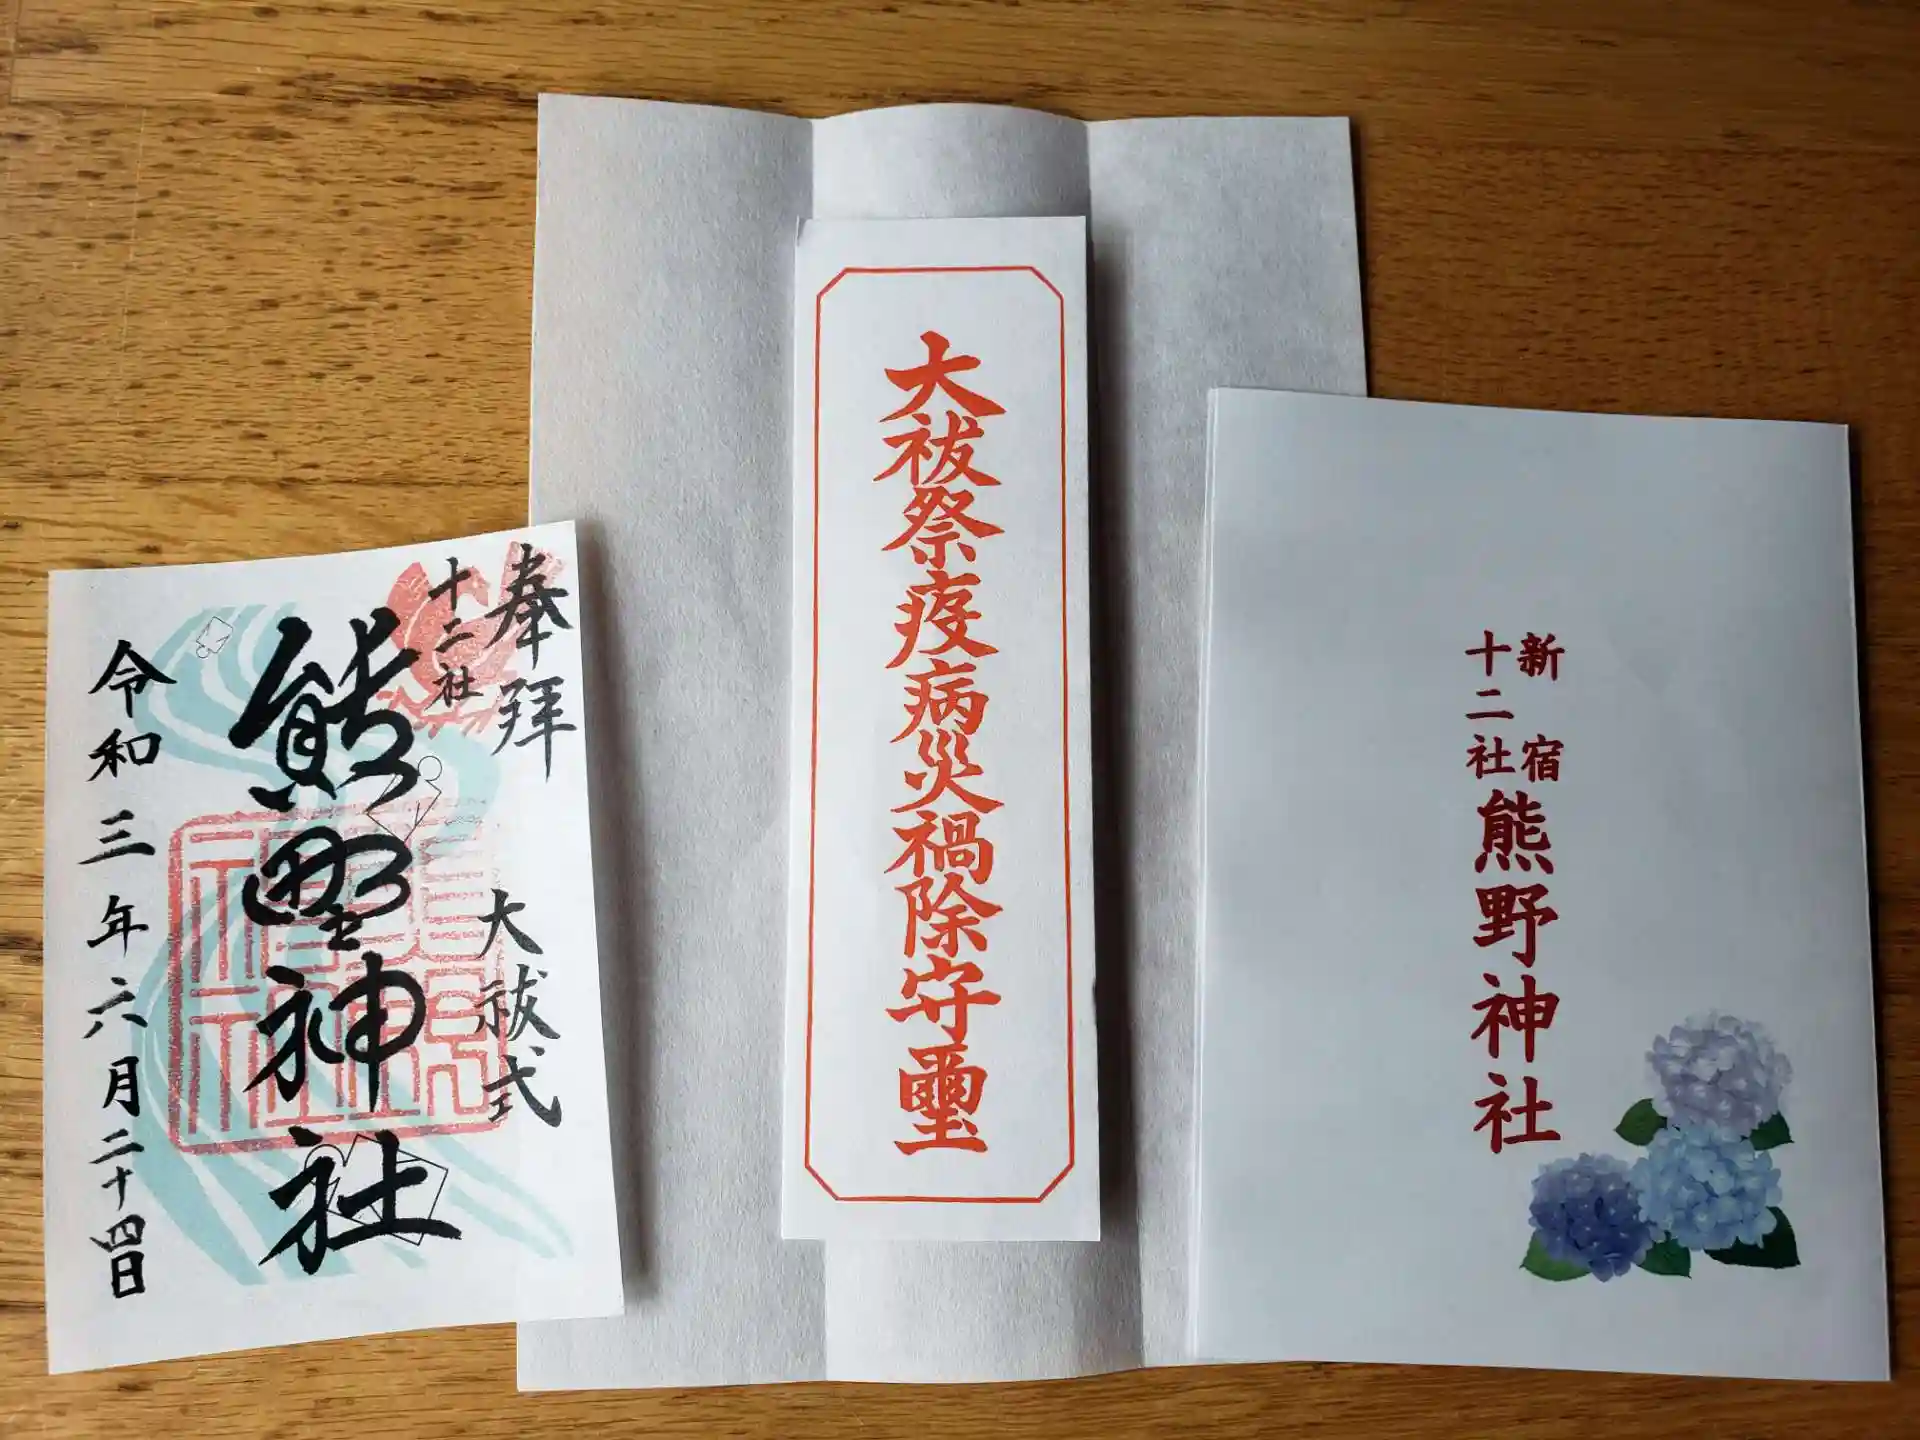 奉拝
十二社
大祓式
熊野神社
令和三年六月二十四日
大祓祭疫病災禍除守璽
新宿
十二社
熊野神社